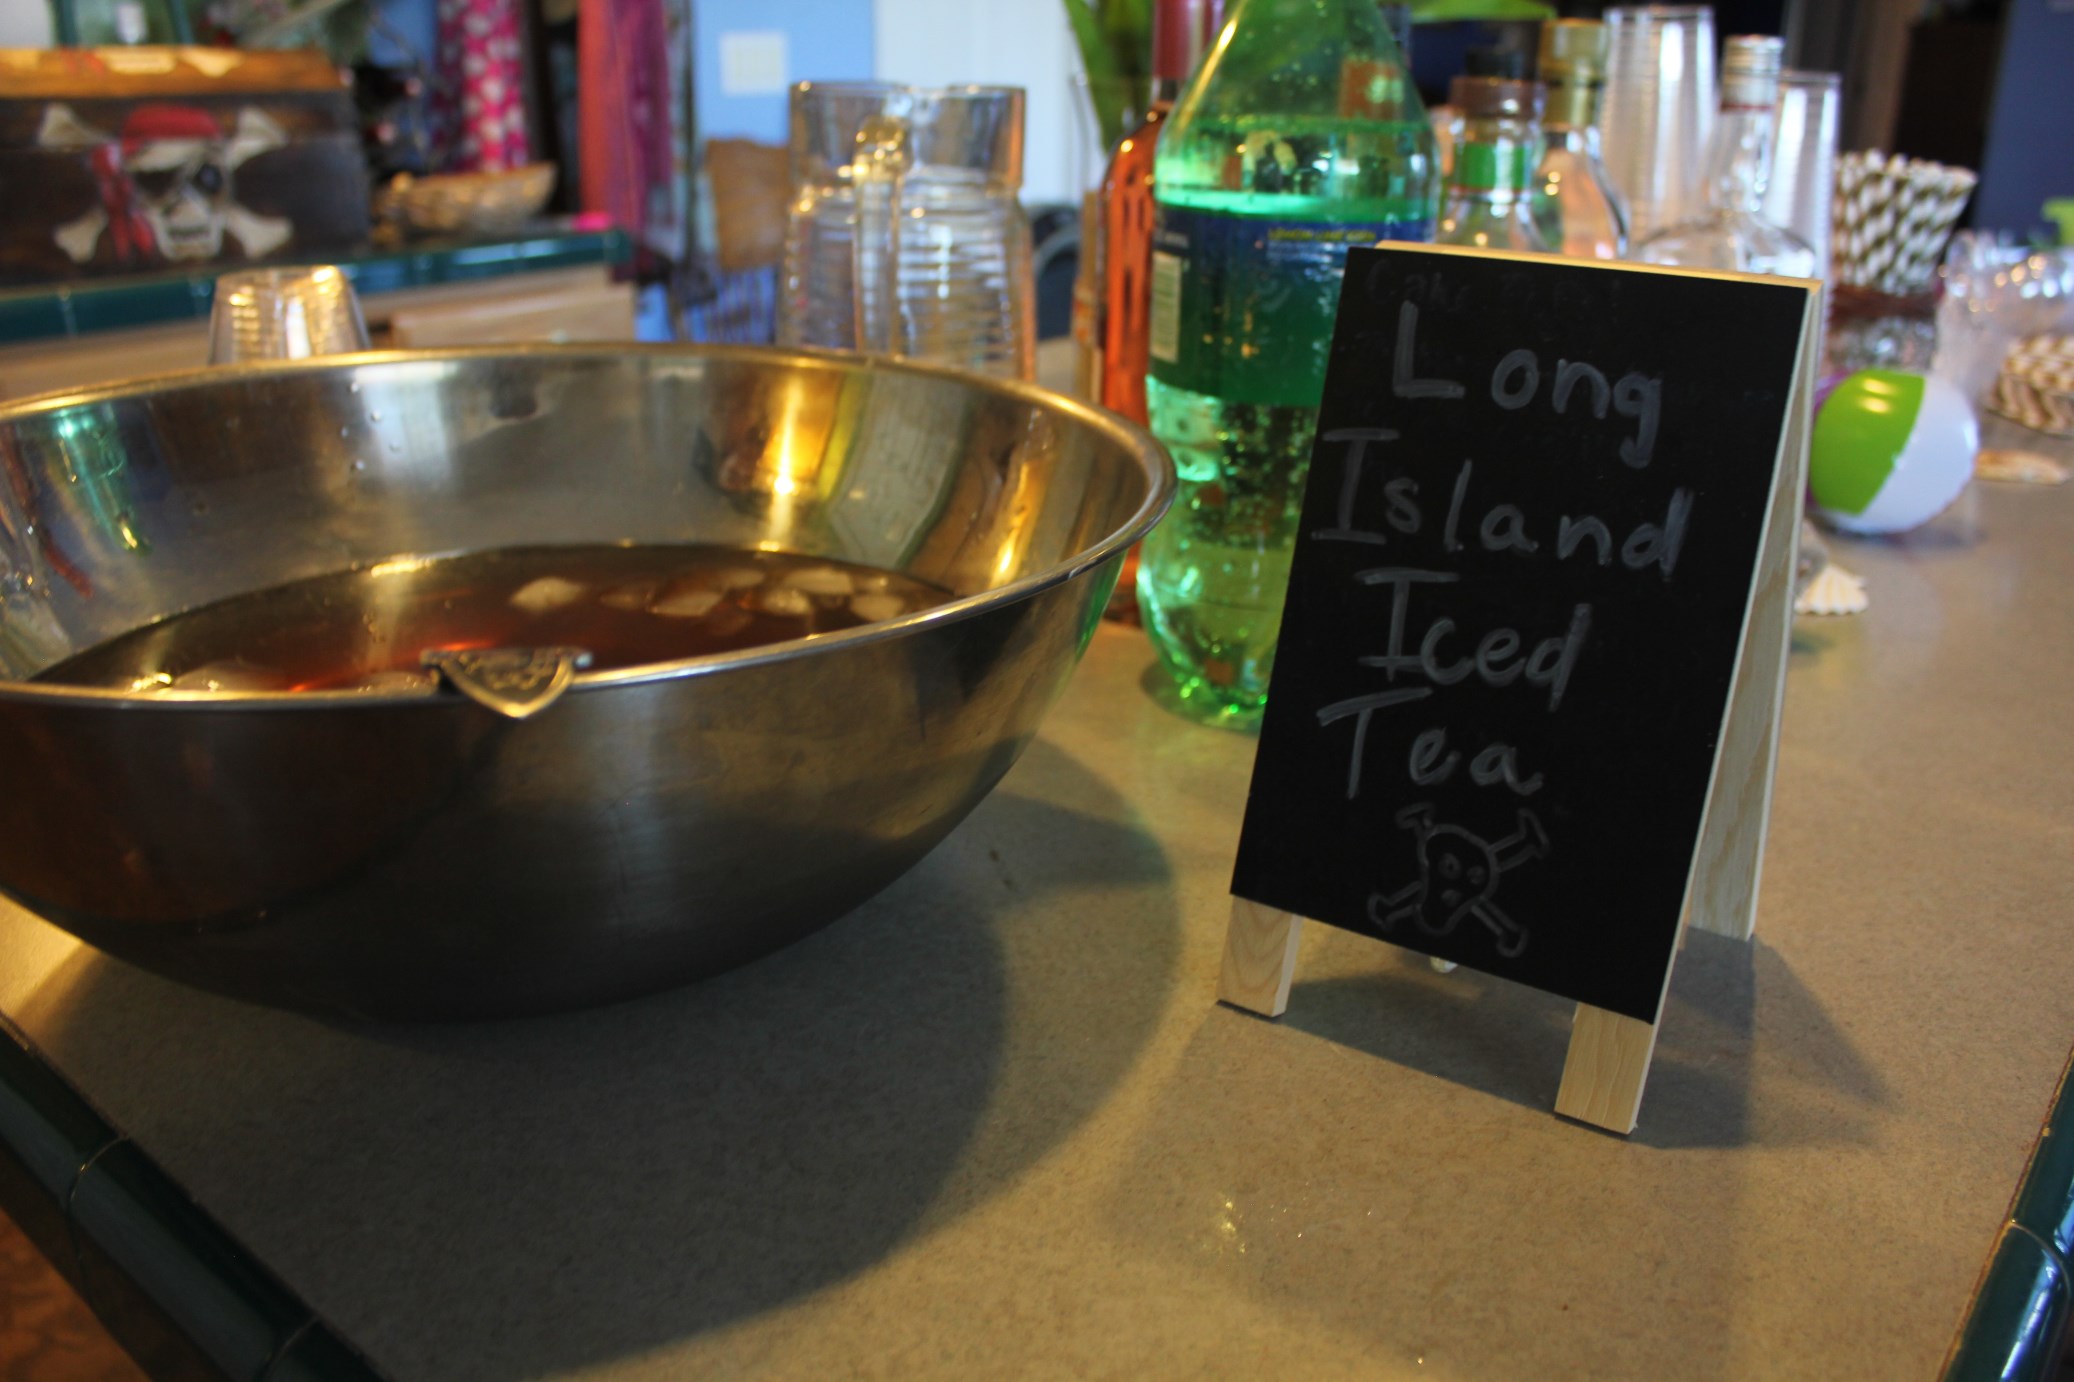 Long
Island
Iced
Tea